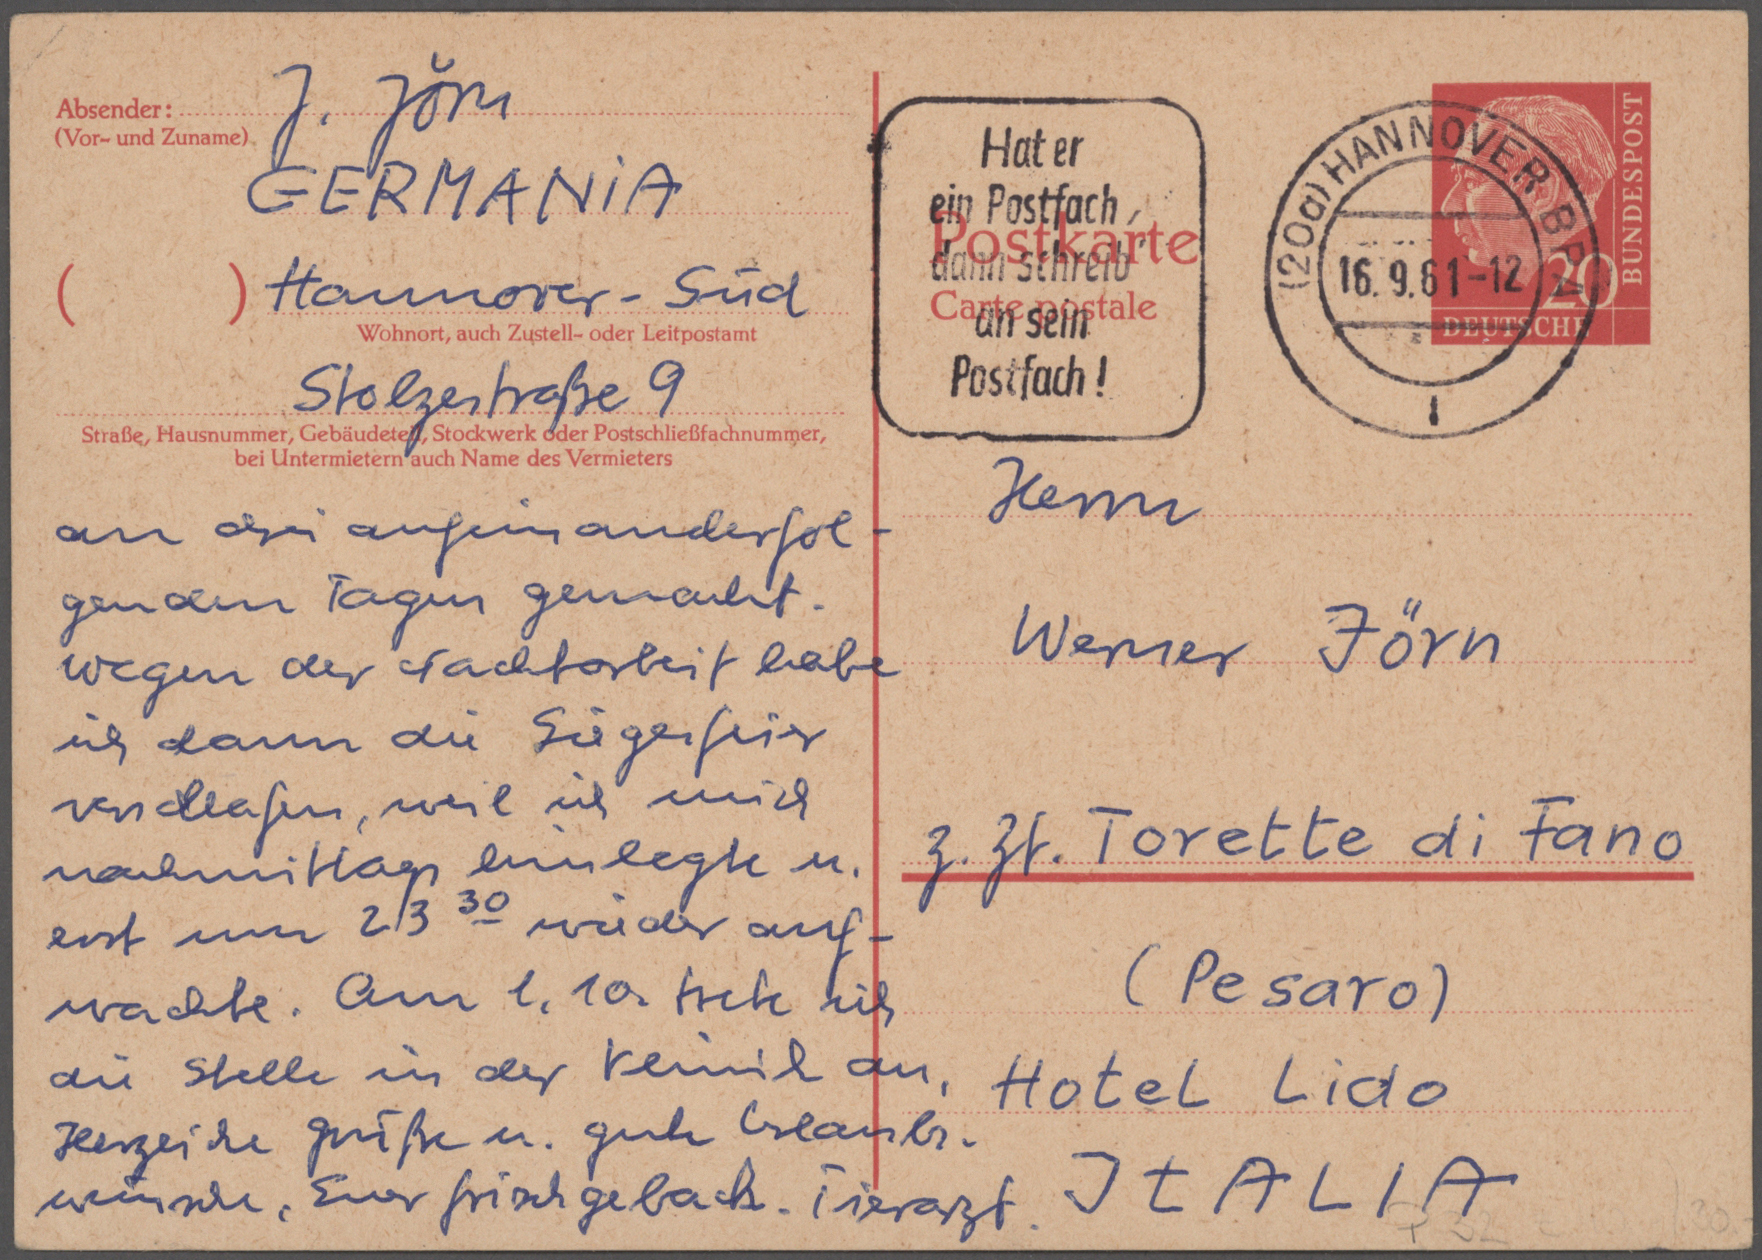 Absender: J. Jörn
(Vor- und Zuname)
GERMANIA
( ) Hannover - Süd
Wohnort, auch Zustell- oder Leitpostamt
Stolzestraße 9
Straße, Hausnummer, Gebäudeteil, Stockwerk oder Postschließfachnummer,
bei Untermietern auch Name des Vermieters
an drei aufeinanderfol-
genden Tagen gemacht.
Wegen der Nachtarbeit habe
ich dann die Siegesfeier
verschlafen, weil ich mich
nachmittags hinlegte u.
erst um 23 30 wieder auf-
wachte. Am 1. 10. trete ich
die Stelle in der Klinik an.
Herzliche Grüße u. gute Urlaubs-
wünsche, Euer frischgeback. Tierarzt.
Hat er
ein Postfach,
dann schreib'
an sein
Postfach!
Postkarte
Carte postale
(20a) HANNOVER BPA
16.9.61-12
i
20
DEUTSCHE
BUNDESPOST
Herrn
Werner Jörn
z. Zt. Torette di Fano
(Pesaro)
Hotel Lido
ItALIA
P 32
30.-